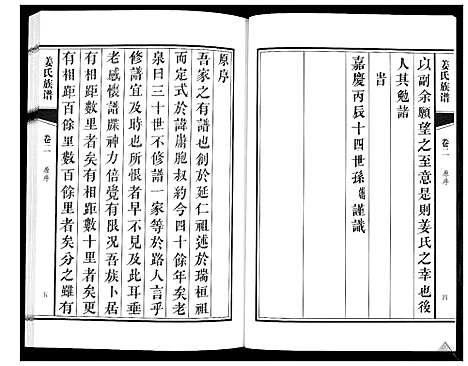 以副余願望之至意是則姜氏之幸也後
人其勉諸
旹
嘉慶丙辰十四世孫謹識
姜氏族谱
卷二
原序
四
姜氏族谱
卷二
原序
五
原序
吾家之有譜也創於延仁祖述於瑞桓祖
而定式於諱庸胞叔約今四十餘年矣老
泉曰三十世不修譜一家等於路人言乎
修譜宜及時也所恨者早不見及此耳垂
老感懷譜牒神力倍覺有限况吾族卜居
有相距數里者矣有相距數十里者矣更
有相距百餘里數百餘里者矣分之雖有